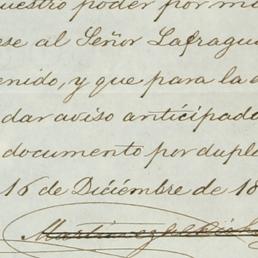 uestro poder por mi
ese al Señor Lafragu
enido, y que para la
dar aviso anticipado
documento por dupl
16 de Diciembre de 18